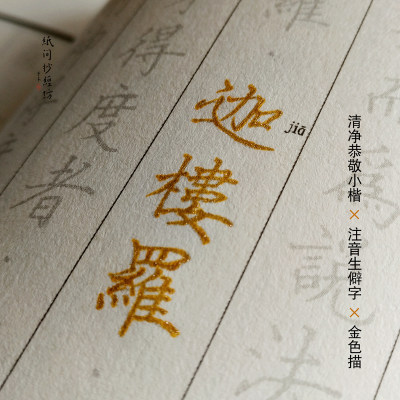 清净恭敬小楷×注音生僻字×金色描
而爲說法
羅
迦樓羅
jiā
得度者